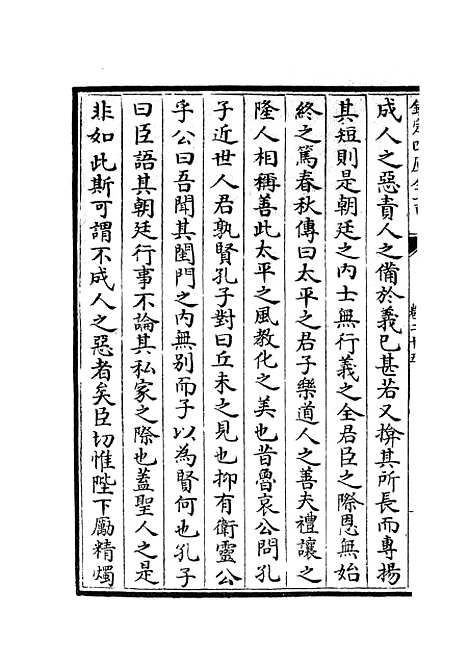 成人之惡責人之備於義已甚若又揜其所長而專揚
其短則是朝廷之內士無行義之全君臣之際恩無始
終之篤春秋傳曰太平之君子樂道人之善夫禮讓之
隆人相稱善此太平之風教化之美也昔魯哀公問孔
子近世人君孰賢孔子對曰丘未之見也抑有衛靈公
乎公曰吾聞其閨門之內無別而子以為賢何也孔子
曰臣語其朝廷行事不論其私家之際也蓋聖人之是
非如此斯可謂不成人之惡者矣臣切惟陛下勵精燭
卷二十五